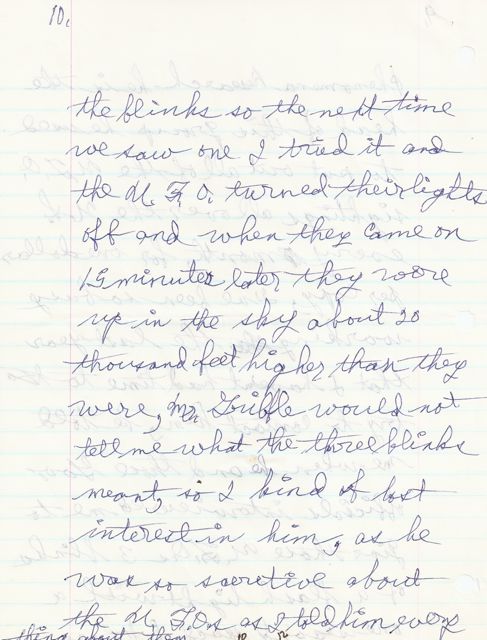 10.
the blinks so the next time
we saw one I tried it and
the U. F. O. turned their lights
off and when they came on
15 minutes later they wore
up in the sky about 20
thousand feet higher than they
were, Mr. would not
tell me what the three blinks
meant, so I kind of lost
interest in him, as he
was so secretive about
the U. F. Os as I told him every
thing about them